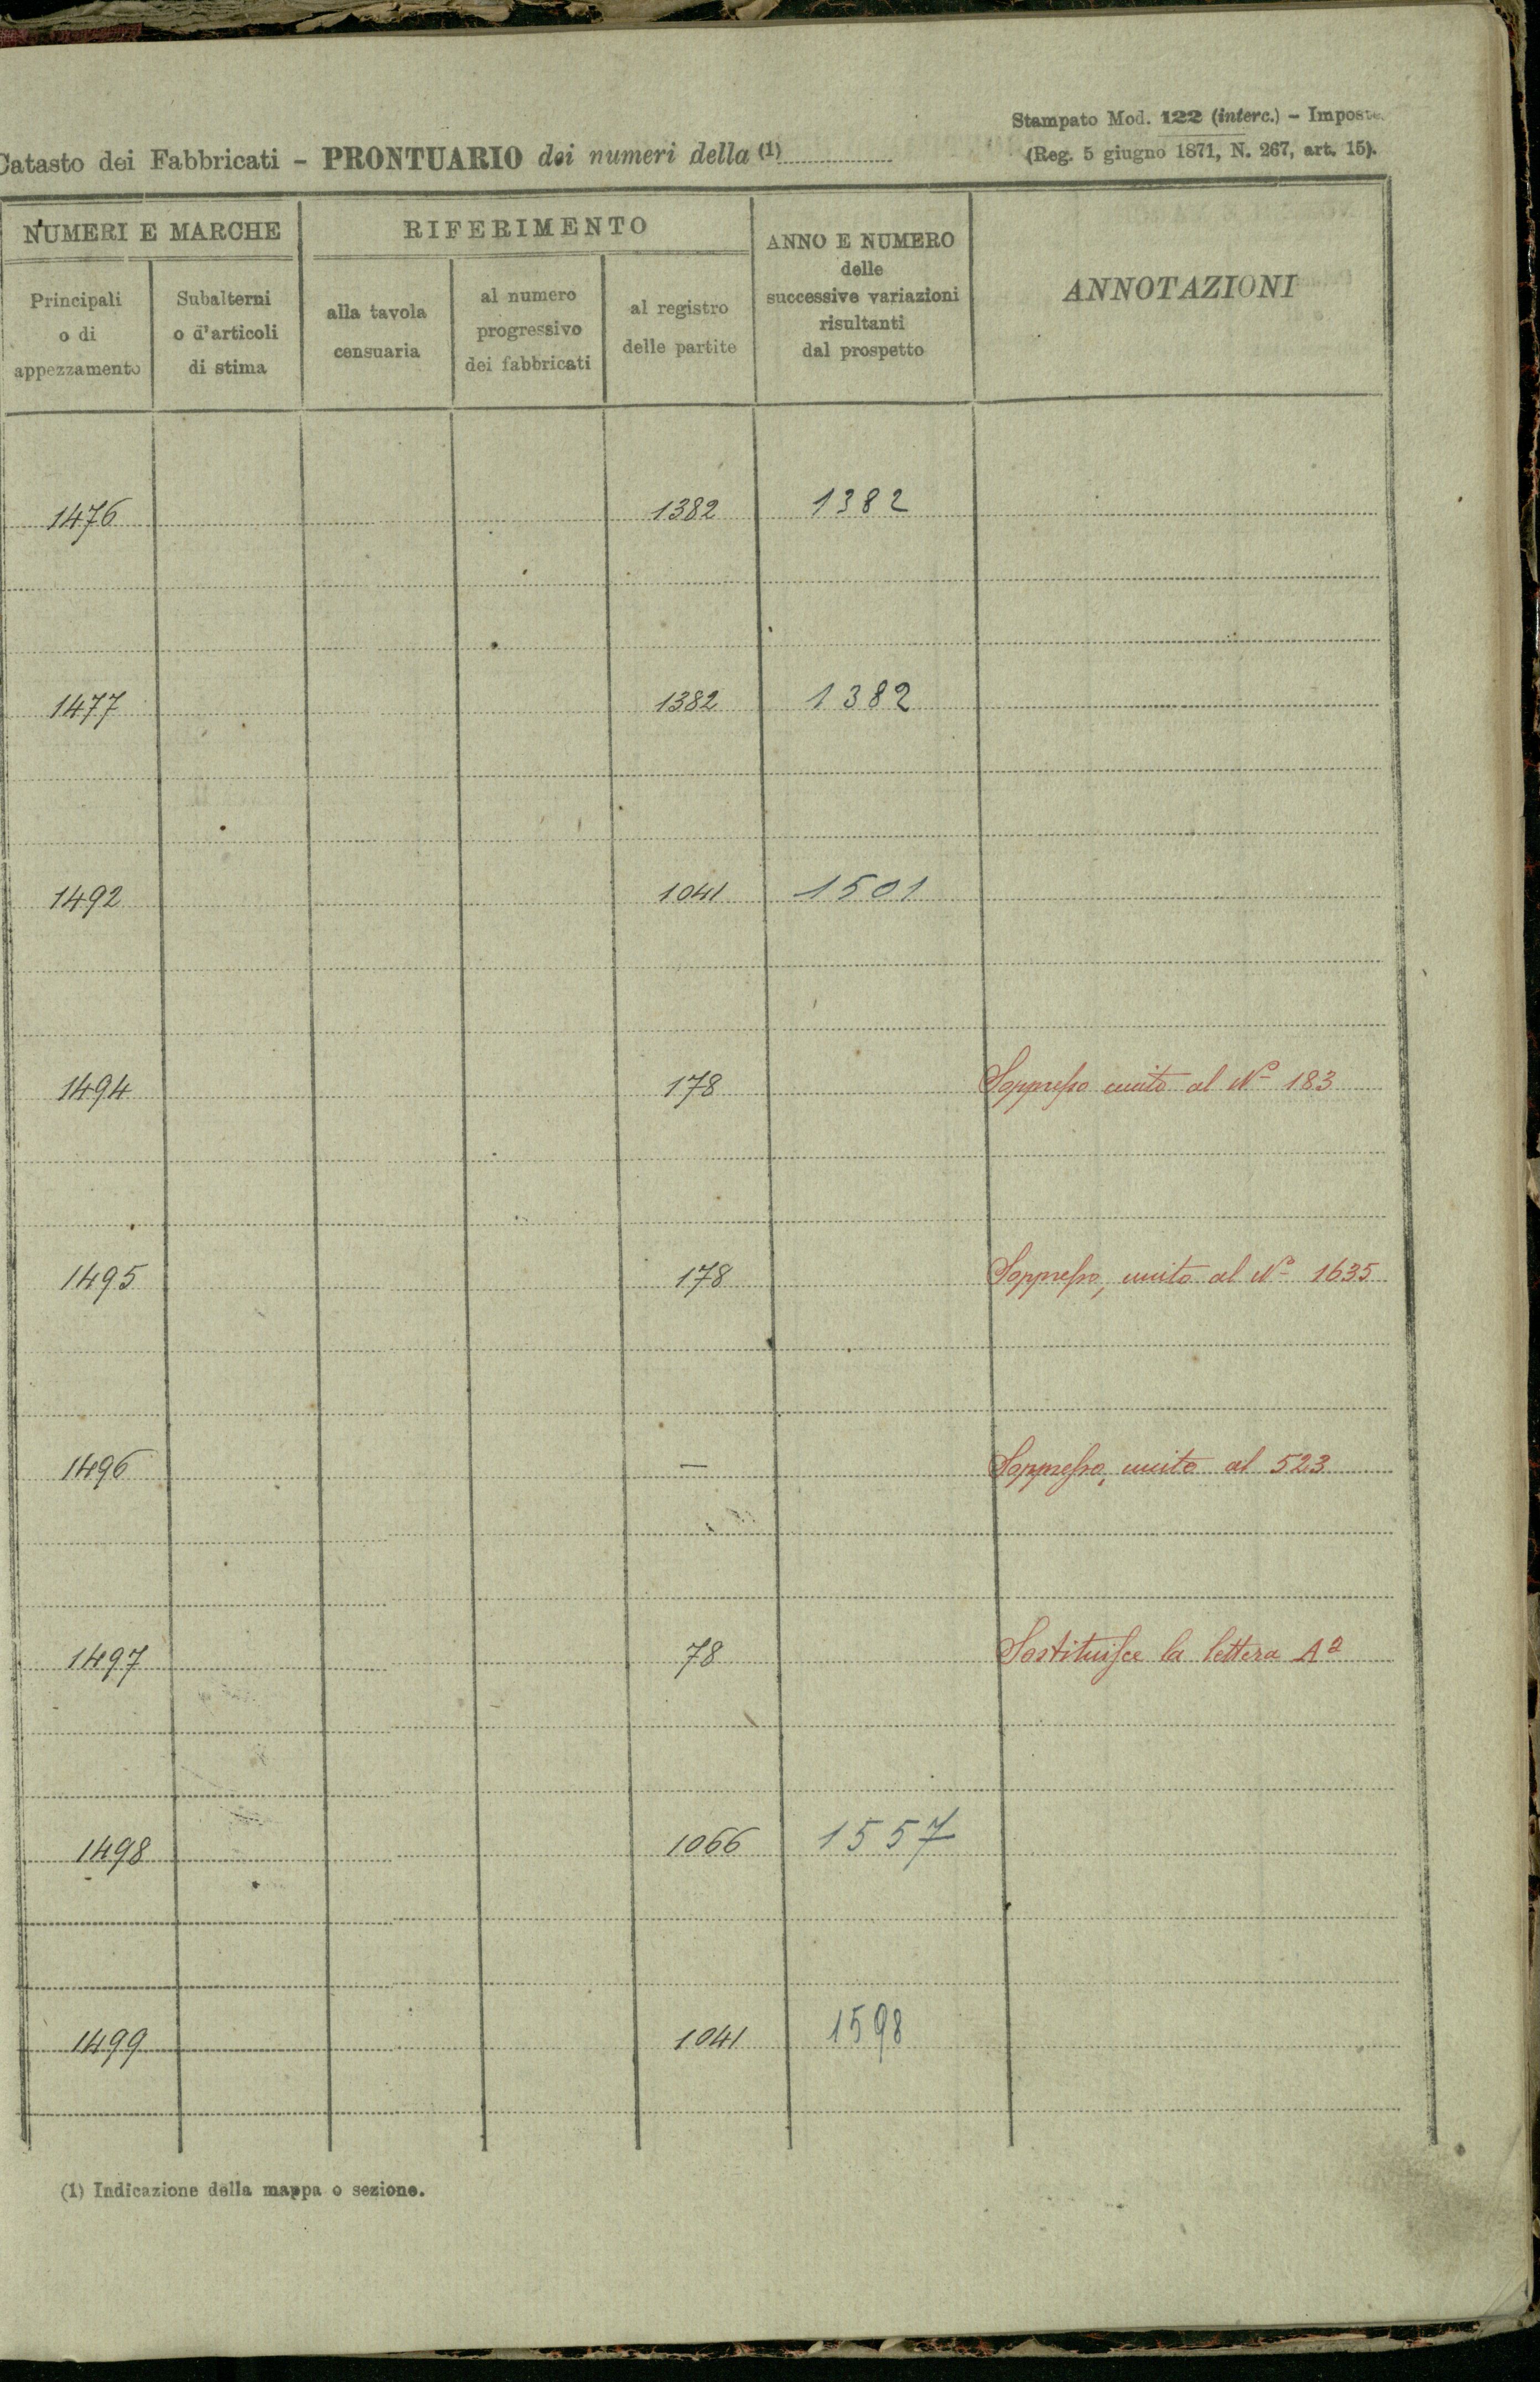 Stampato Mod. 122 (interc.) – Imposte
Catasto dei Fabbricati – PRONTUARIO dei numeri della (1)
(Reg. 5 giugno 1871, N. 267, art. 15).
NUMERI E MARCHE
RIFERIMENTO
ANNO E NUMERO
delle
successive variazioni
risultanti
dal prospetto
ANNOTAZIONI
Principali
o di
appezzamento
Subalterni
o d'articoli
di stima
alla tavola
censuaria
al numero
progressivo
dei fabbricati
al registro
delle partite
1476 1382 1382
1477 1382 1382
1492 1041 1501
1494 178 Soppresso unito al Nº 183
1495 178 Soppresso, unito al Nº 1635
1496 — Soppresso, unito al 523
1497 78 Sostituisce la lettera A²
1498 1066 1557
1499 1041 1598
(1) Indicazione della mappa o sezione.